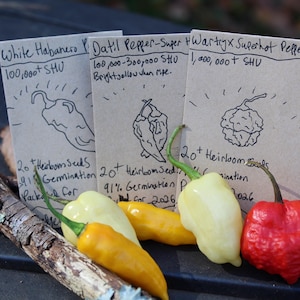 White Habanero
100,000+ SHU
20+ Heirloom Seeds
Datil Pepper-Super
100,000-300,000 SHU
Bright yellow when ripe.
20+ Heirloom Seeds
91% Germination
for 2026
Wartryx Superhot Pepper
1,000,000+ SHU
20+ Heirloom Seeds
Germination
2026